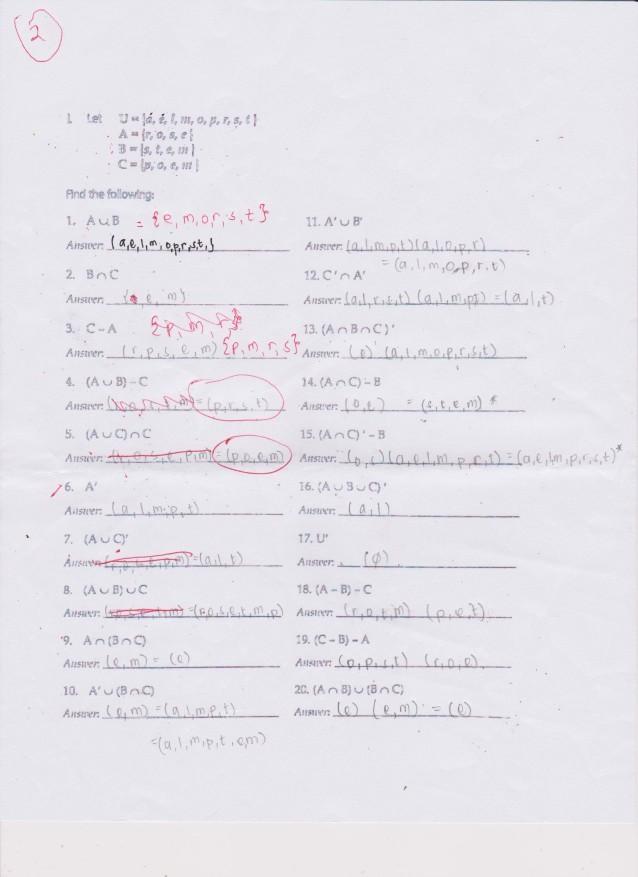 2
1. Let U = {a, e, l, m, o, p, r, s, t}
A = {r, o, s, e}
B = {s, t, e, m}
C = {p, o, e, m}
Find the following:
1. A∪B = {e, m, o, r, s, t}
Answer: {a, e, l, m, o, p, r, s, t, }
2. B∩C
Answer: e, m)
3. C-A {p, m,
Answer: (r, p, s, e, m) {p, m, r, s}
4. (A∪B)-C
Answer: = (p, r, s, t)
5. (A∪C)∩C
Answer: = (p, o, e, m)
6. A'
(a, l, m, p, t)
Answer:
7. (A∪C)'
Answer: = (a, l, t)
8. (A∪B)∪C
Answer: = (r, o, s, e, t, m, p)
9. A∩(B∩C)
Answer: (e, m) = (e)
10. A'∪(B∩C)
Answer: (e, m) = (a, l, m, p, t)
= (a, l, m, p, t, e, m)
11. A'∪B'
Answer: (a, l, m, p, t) (a, l, o, p, r)
= (a, l, m, o, p, r, t)
12. C'∩A'
Answer: (a, l, r, s, t) (a, l, m, p, t) = (a, l, t)
13. (A∩B∩C)'
Answer: (e)' (a, l, m, o, p, r, s, t)
14. (A∩C)-B
Answer: (o, e) = (s, t, e, m) *
15. (A∩C)'-B
Answer: (o, e) (a, e, l, m, p, r, t) = (a, e, l, m, p, r, s, t)*
16. (A∪B∪C)'
Answer: (a, l)
17. U'
Answer: (∅)
18. (A-B)-C
Answer: (r, o, t, m) (p, e, t)
19. (C-B)-A
Answer: (o, p, s, t) (r, o, e)
20. (A∩B)∪(B∩C)
Answer: (e) (e, m) = (e)